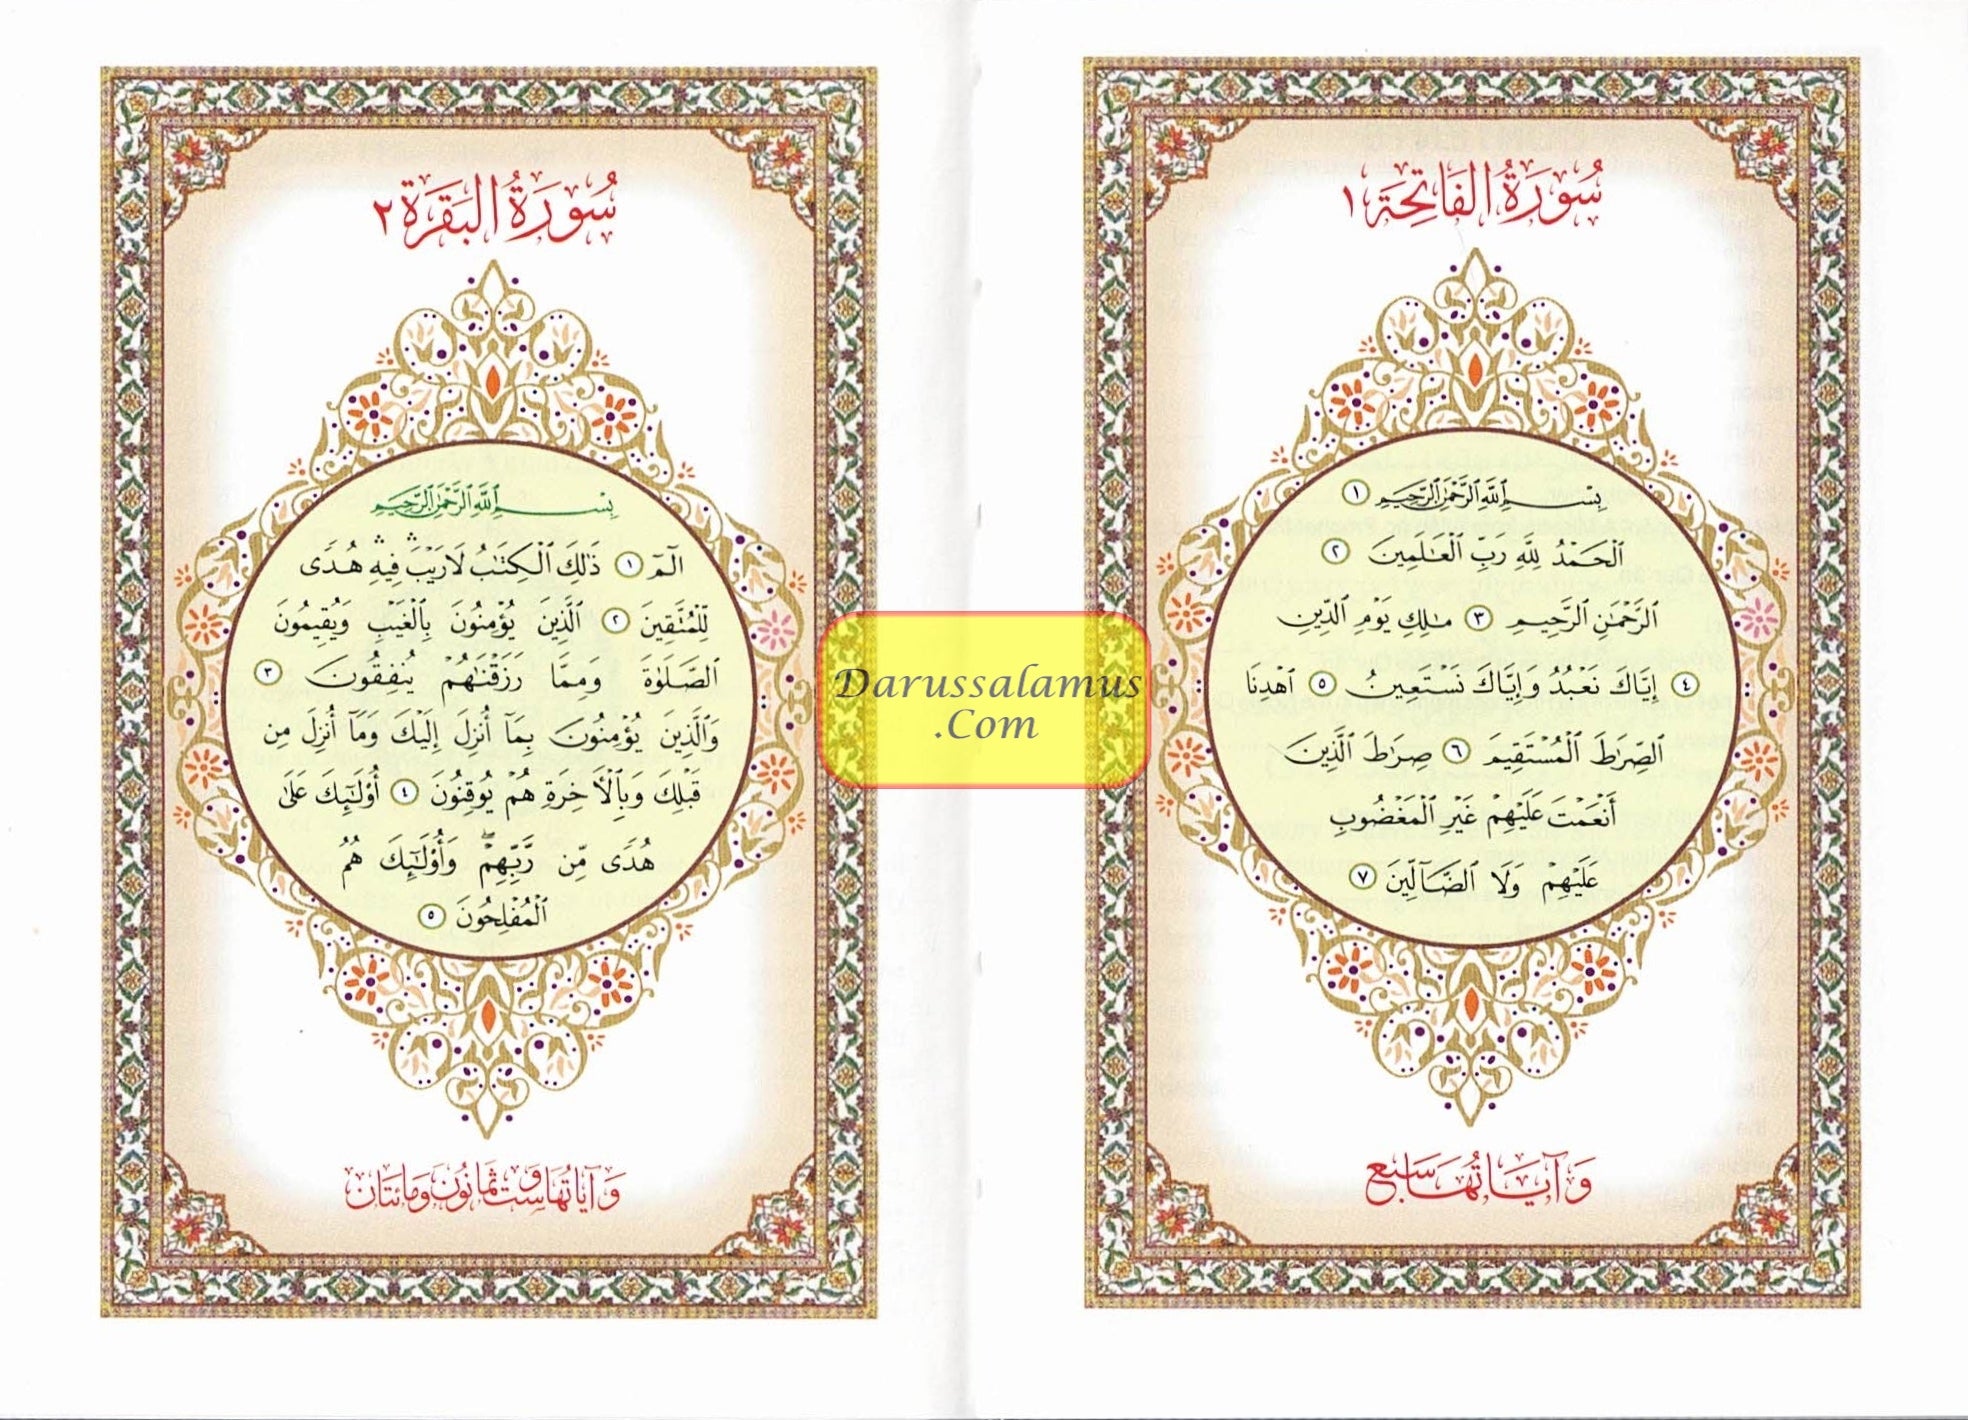 سُورَةُ الفَاتِحَة ١
بِسْمِ ٱللَّهِ ٱلرَّحْمَٰنِ ٱلرَّحِيمِ ١
ٱلْحَمْدُ لِلَّهِ رَبِّ ٱلْعَٰلَمِينَ ٢
ٱلرَّحْمَٰنِ ٱلرَّحِيمِ ٣ مَٰلِكِ يَوْمِ ٱلدِّينِ
٤ إِيَّاكَ نَعْبُدُ وَإِيَّاكَ نَسْتَعِينُ ٥ ٱهْدِنَا
ٱلصِّرَٰطَ ٱلْمُسْتَقِيمَ ٦ صِرَٰطَ ٱلَّذِينَ
أَنْعَمْتَ عَلَيْهِمْ غَيْرِ ٱلْمَغْضُوبِ
عَلَيْهِمْ وَلَا ٱلضَّآلِّينَ ٧
وَآيَاتُهَا سَبْع
سُورَةُ البَقَرَة ٢
بِسْمِ ٱللَّهِ ٱلرَّحْمَٰنِ ٱلرَّحِيمِ
الٓمٓ ١ ذَٰلِكَ ٱلْكِتَٰبُ لَا رَيْبَ ۛ فِيهِ ۛ هُدًى
لِّلْمُتَّقِينَ ٢ ٱلَّذِينَ يُؤْمِنُونَ بِٱلْغَيْبِ وَيُقِيمُونَ
ٱلصَّلَوٰةَ وَمِمَّا رَزَقْنَٰهُمْ يُنفِقُونَ ٣
وَٱلَّذِينَ يُؤْمِنُونَ بِمَآ أُنزِلَ إِلَيْكَ وَمَآ أُنزِلَ مِن
قَبْلِكَ وَبِٱلْأَخِرَةِ هُمْ يُوقِنُونَ ٤ أُو۟لَٰٓئِكَ عَلَىٰ
هُدًى مِّن رَّبِّهِمْ ۖ وَأُو۟لَٰٓئِكَ هُمُ
ٱلْمُفْلِحُونَ ٥
وَآيَاتُهَا سِتٌّ وَثَمَانُونَ وَمَائَتَان
Darussalamus
.Com